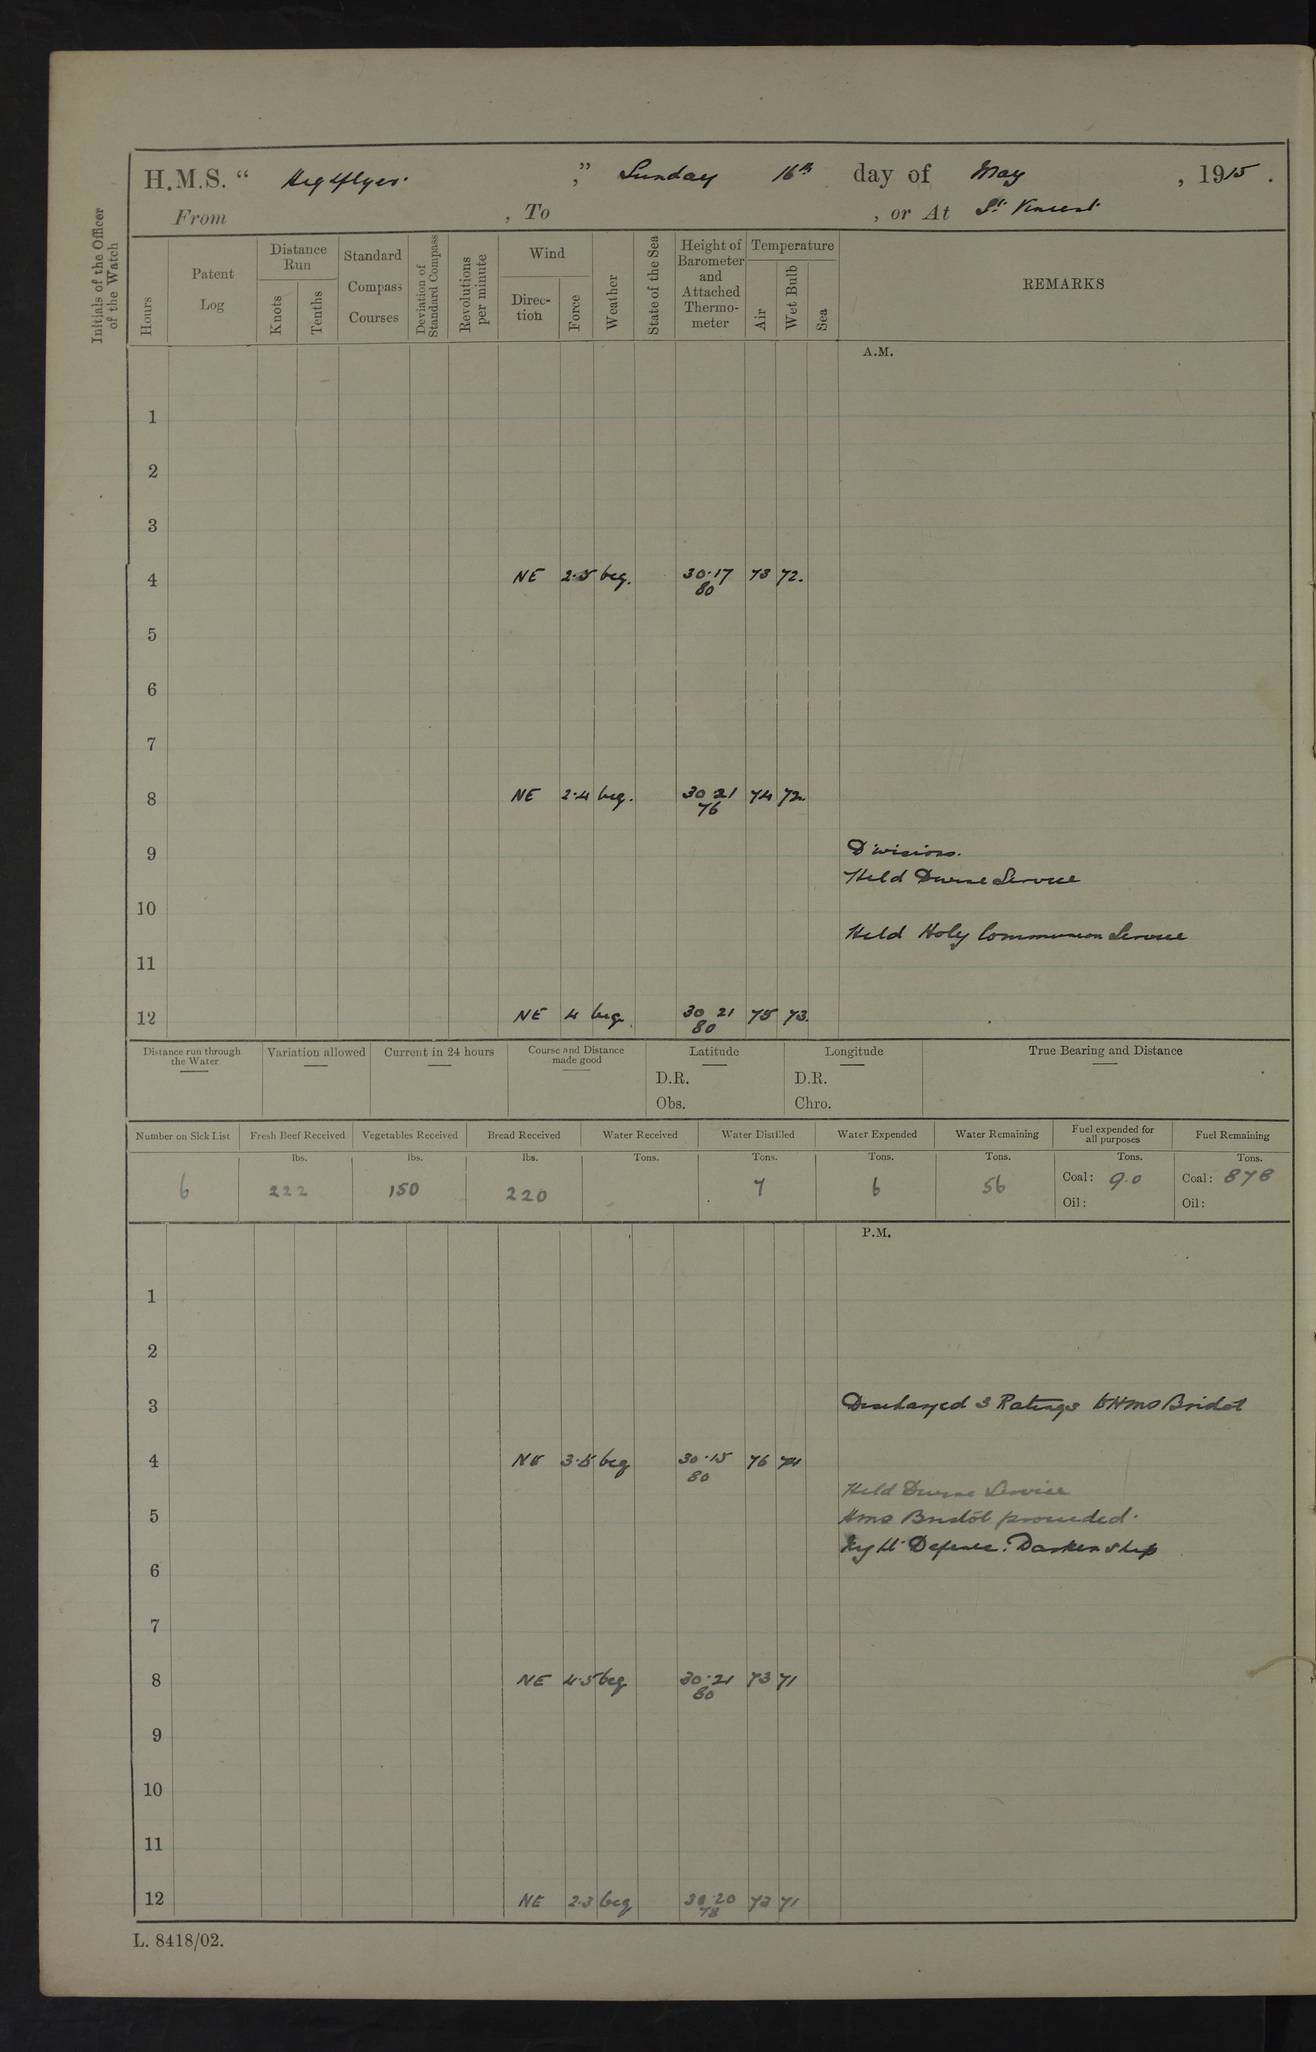 H.M.S. " Highflyer. ," Sunday 16th day of May , 1915 .
From , To , or At St. Vincent
Initials of the Officer of the Watch
Hours
Patent Log
Distance Run
Knots
Tenths
Standard Compass Courses
Deviation of Standard Compass
Revolutions per minute
Wind
Direc-tion
Force
Weather
State of the Sea
Height of Barometer and Attached Thermo-meter
Temperature
Air
Wet Bulb
Sea
REMARKS
A.M.
1
2
3
4 NE 2.5 bcg. 30.17 73 72.
80
5
6
7
8 NE 2.4 bcg. 30 21 74 72.
76
9 Divisions.
Held Divine Service
10
Held Holy Communion Service
11
12 NE 4 bcg. 30 21 75 73.
80
Distance run through the Water
Variation allowed
Current in 24 hours
Course and Distance made good
Latitude
D.R.
Obs.
Longitude
D.R.
Chro.
True Bearing and Distance
Number on Sick List Fresh Beef Received Vegetables Received Bread Received Water Received Water Distilled Water Expended Water Remaining Fuel expended for all purposes Fuel Remaining
lbs. lbs. lbs. Tons. Tons. Tons. Tons. Tons. Tons.
6 222 150 220 7 6 56 Coal: 9.0 Coal: 878
Oil: Oil:
P.M.
1
2
3 Discharged 3 Ratings to HMS Bristol
4 NE 3.5 bcg 30.15 76 74
80
Held Divine Service
5 HMS Bristol proceeded.
Night Defence. Darken ship
6
7
8 NE 4.5 bcg 30.21 73 71
80
9
10
11
12 NE 2.3 bcg 30.20 73 71
78
L. 8418/02.